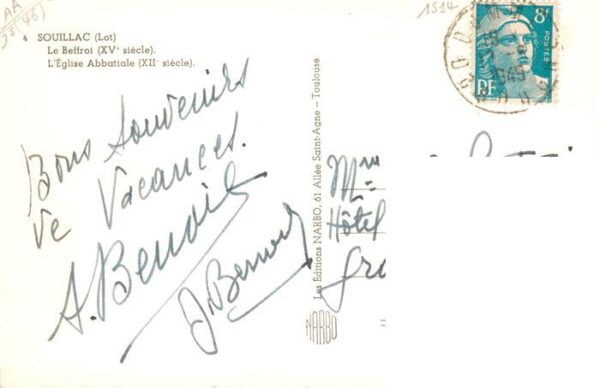 AA
1514
4 SOUILLAC (Lot)
Le Beffroi (XVe siècle).
L'Église Abbatiale (XIIe siècle).
8F
POSTES
RF
Bons Souvenirs
de Vacances.
A. Benoit
J. Benoit
Les Éditions NARBO, 61 Allée Saint-Agne - Toulouse
NARBO
Mme
Hôtel